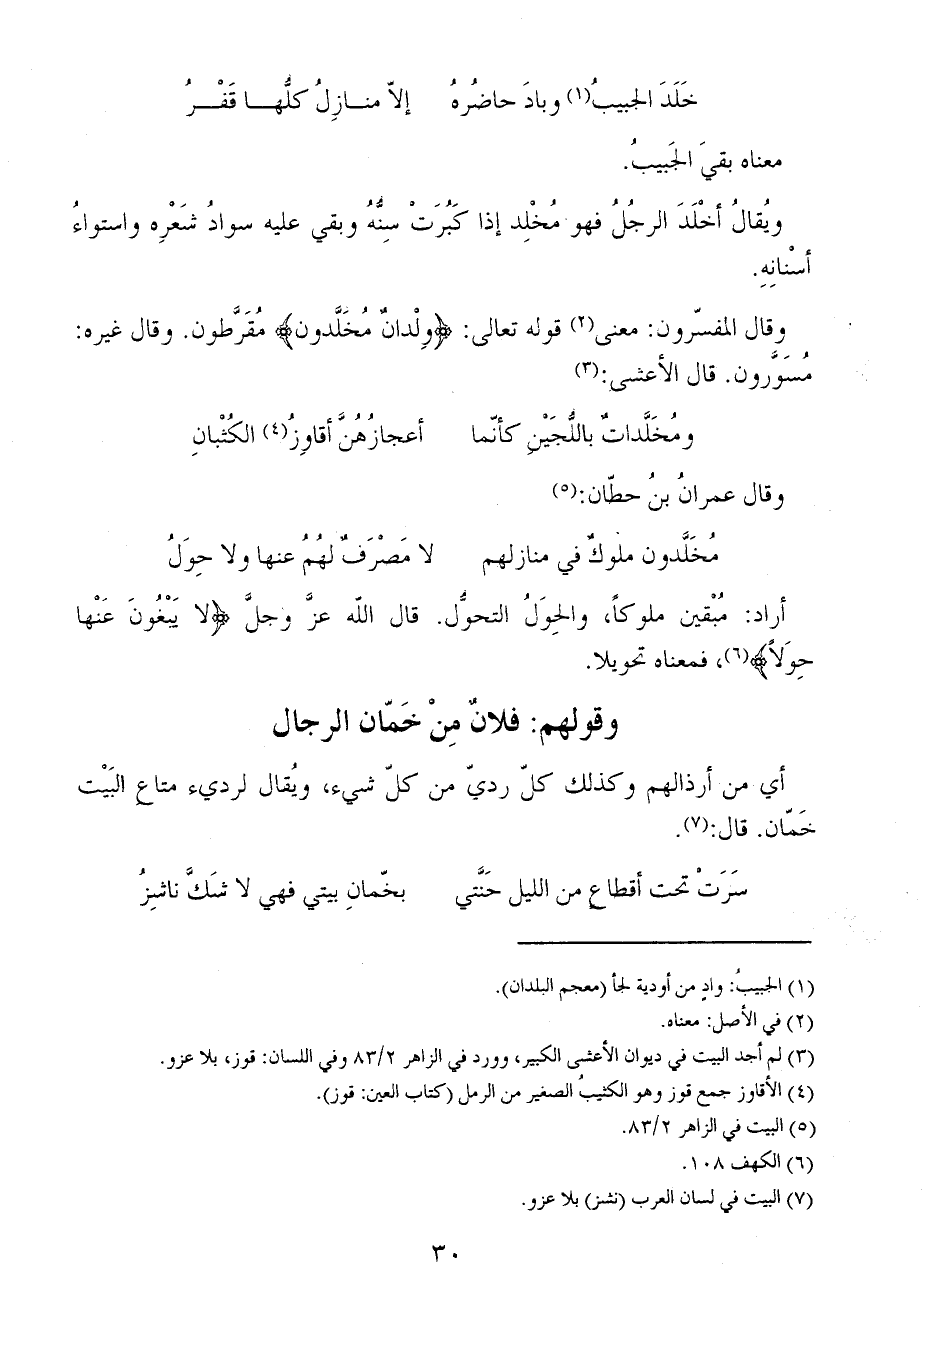 خَلَدَ الجبيبُ(١) وبادَ حاضُرهُ إلاّ منـازِلُ كلُّهـا قَفْـرُ
معناه بقيَ الجَبيبُ.
ويُقالُ أخْلَدَ الرجُلُ فهو مُخْلِد إذا كَبُرَتْ سِنُّهُ وبقي عليه سوادُ شَعْرِه واستواءُ
أسْنانِهِ.
وقال المفسّرون: معنى(٢) قوله تعالى: ﴿وِلْدانٌ مُخَلَّدون﴾ مُقَرَّطون. وقال غيره:
مُسَوَّرون. قال الأعشى:(٣)
ومُخَلَّداتٌ باللُّجَيْنِ كأنّما أعجازُهُنَّ أقاوِزُ(٤) الكُثْبانِ
وقال عمرانُ بنُ حطّان:(٥)
مُخَلَّدون ملوكٌ في منازلهم لا مَصْرَفٌ لهُمُ عنها ولا حِوَلُ
أراد: مُبْقين ملوكاً، والحِوَلُ التحوُّل. قال اللّه عزَّ وجلَّ ﴿لا يَبْغُونَ عَنْها
حِوَلاً﴾(٦)، فمعناه تحويلا.
وقولهم: فلانٌ مِنْ خَمّان الرجال
أي من أرذالهم وكذلك كلّ رديّ من كلّ شيء، ويُقال لرديء متاع البَيْت
خَمّان. قال:(٧).
سَرَتْ تحت أقطاع من الليل حَنَّتي بخّمانِ بيتي فهي لا شَكَّ ناشِزُ
(١) الجبيبُ: وادٍ من أودية لجأ (معجم البلدان).
(٢) في الأصل: معناه.
(٣) لم أجد البيت في ديوان الأعشى الكبير، وورد في الزاهر ٨٣/٢ وفي اللسان: قوز، بلا عزو.
(٤) الأقاوز جمع قوز وهو الكثيبُ الصغير من الرمل (كتاب العين: قوز).
(٥) البيت في الزاهر ٨٣/٢.
(٦) الكهف ١٠٨.
(٧) البيت في لسان العرب (نشز) بلا عزو.
٣٠